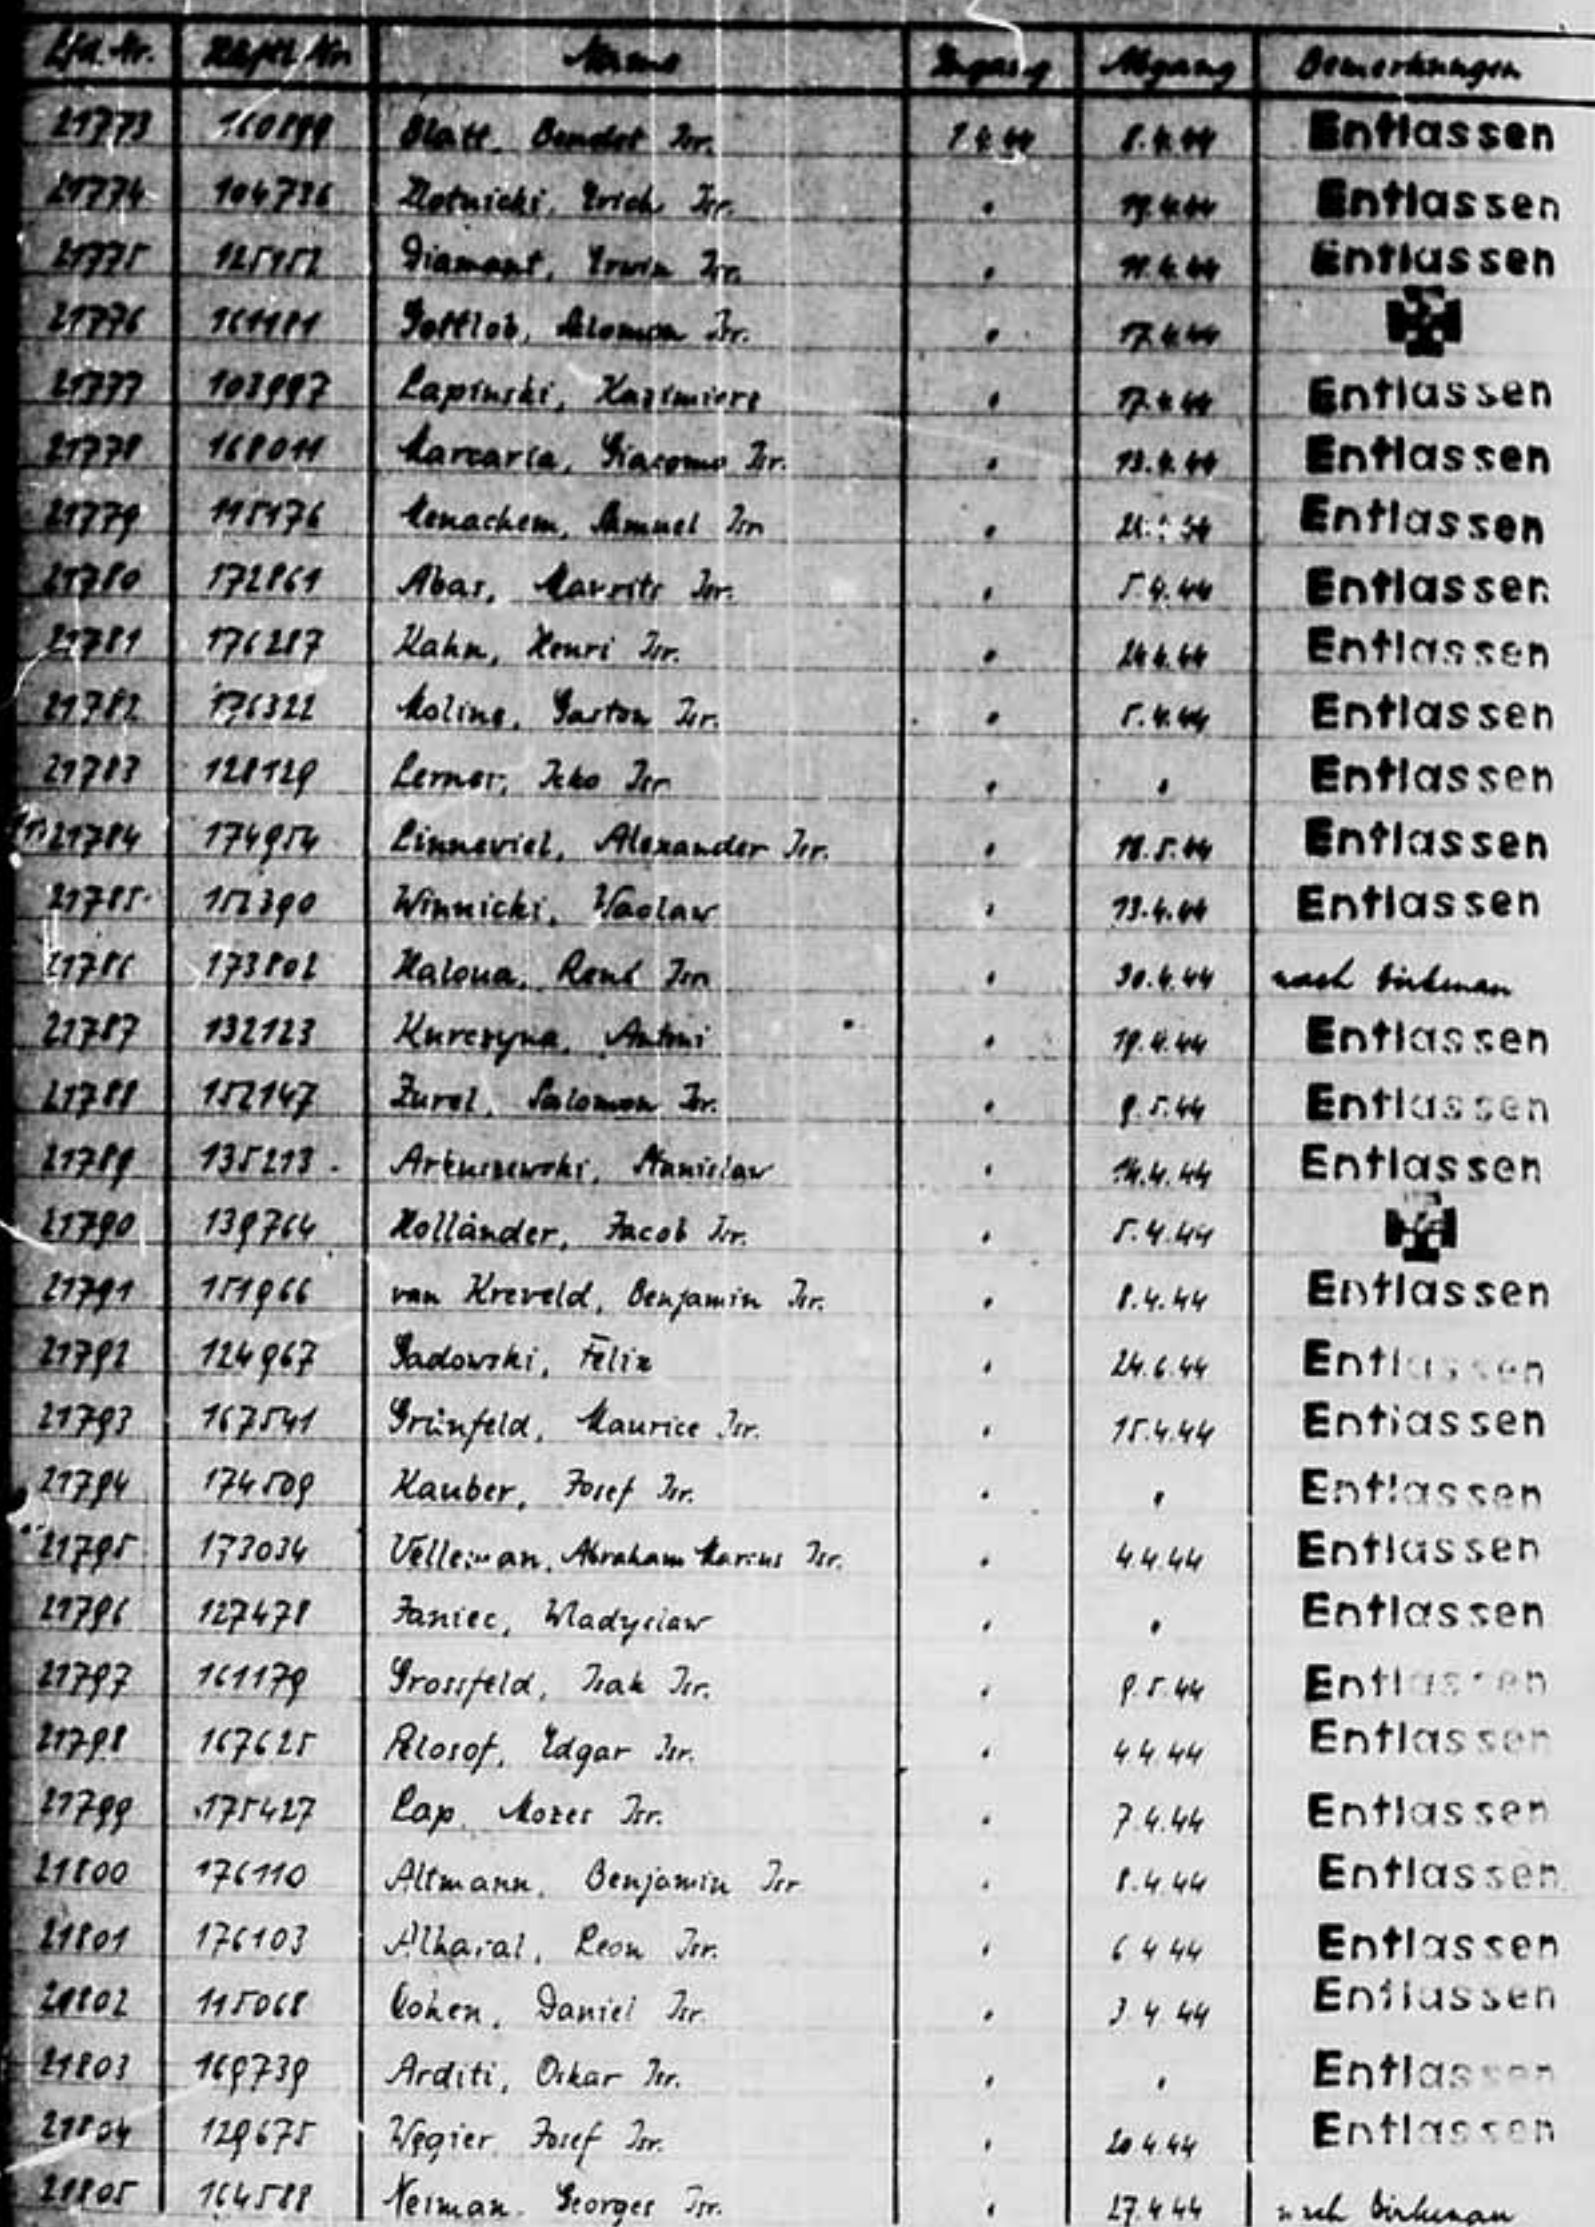 Lfd. Nr. Häftl. Nr. Name Zugang Abgang Bemerkungen
21773 160899 Blatt, Bendet Isr. 1.4.44 8.4.44 Entlassen
21774 104736 Zlotnicki, Erich Isr. " 19.4.44 Entlassen
21775 125152 Diamant, Erwin Isr. " 11.4.44 Entlassen
21776 161181 Gottlob, Salomon Isr. " 17.4.44
21777 103997 Lapinski, Kazimierz " 17.4.44 Entlassen
21778 168011 Marcaria, Giacomo Isr. " 13.4.44 Entlassen
21779 115176 Menachem, Samuel Isr. " Entlassen
21780 172861 Abas, Maurits Isr. " 5.4.44 Entlassen
21781 176287 Kahn, Henri Isr. " 24.4.44 Entlassen
21782 176322 Moline, Gaston Isr. " 5.4.44 Entlassen
21783 128129 Lerner, Icko Isr. " " Entlassen
21784 174954 Linneviel, Alexander Isr. " 18.5.44 Entlassen
21785 152390 Winnicki, Waclaw " 13.4.44 Entlassen
21786 173802 Haloua, René Isr. " 30.4.44 nach Birkenau
21787 132123 Kurczyna, Antoni " 19.4.44 Entlassen
21788 152147 Zurel, Salomon Isr. " 9.5.44 Entlassen
21789 135213 Arkuszewski, Stanislaw " 14.4.44 Entlassen
21790 139764 Holländer, Jacob Isr. " 5.4.44
21791 151966 van Kreveld, Benjamin Isr. " 8.4.44 Entlassen
21792 124967 Sadowski, Felix " 24.6.44 Entlassen
21793 167541 Grünfeld, Maurice Isr. " 15.4.44 Entlassen
21794 174509 Kauber, Josef Isr. " " Entlassen
21795 173034 Velleman, Abraham Marcus Isr. " 4.4.44 Entlassen
21796 127478 Janiec, Wladyslaw " " Entlassen
21797 161179 Grossfeld, Isak Isr. " 9.5.44 Entlassen
21798 167625 Pelosof, Edgar Isr. " 4.4.44 Entlassen
21799 175427 Lap, Mozes Isr. " 7.4.44 Entlassen
21800 176110 Altmann, Benjamin Isr. " 8.4.44 Entlassen
21801 176103 Alharal, Leon Isr. " 6.4.44 Entlassen
21802 115068 Cohen, Daniel Isr. " 3.4.44 Entlassen
21803 169739 Arditi, Oskar Isr. " " Entlassen
21804 129675 Węgier, Josef Isr. " 20.4.44 Entlassen
21805 164588 Neiman, Georges Isr. " 27.4.44 nach Birkenau